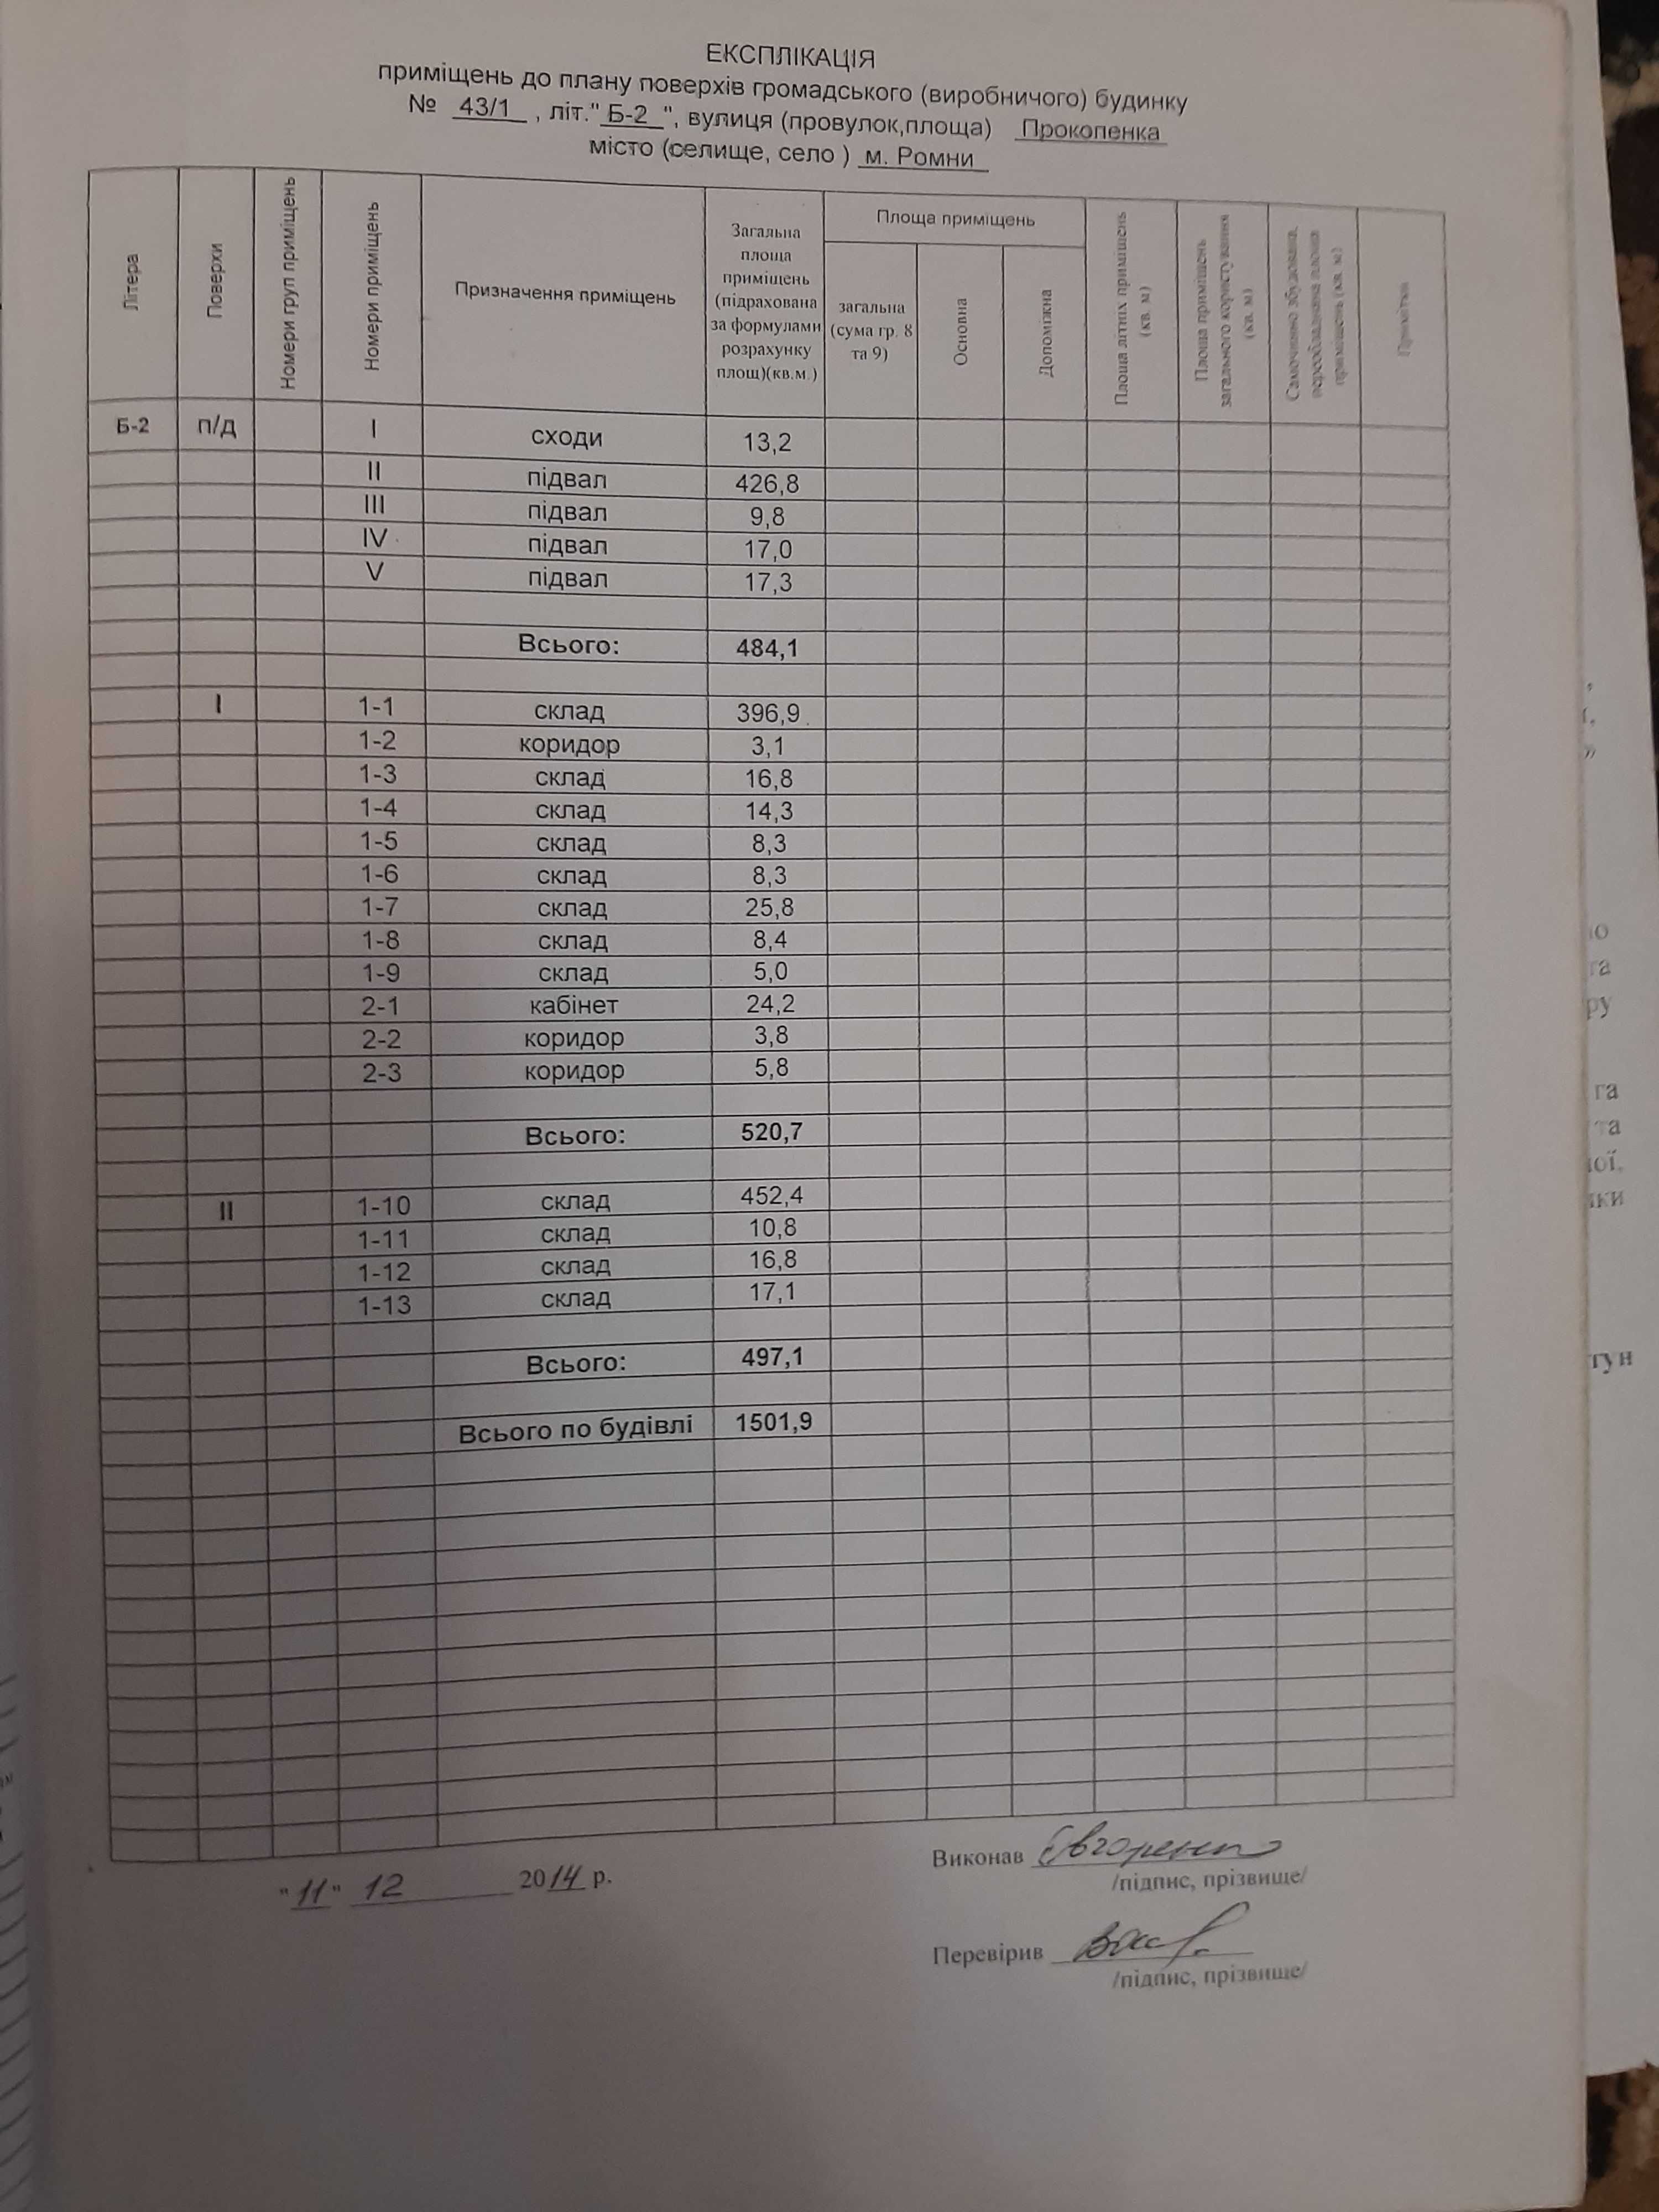 ЕКСПЛІКАЦІЯ
приміщень до плану поверхів громадського (виробничого) будинку
№ 43/1 , літ." Б-2 ", вулиця (провулок,площа) Прокопенка
місто (селище, село ) м. Ромни
Літера
Поверхи
Номери груп приміщень
Номери приміщень
Призначення приміщень
Загальна площа приміщень (підрахована за формулами розрахунку площ)(кв.м.)
Площа приміщень
загальна (сума гр. 8 та 9)
Основна
Допоміжна
Площа літніх приміщень (кв. м)
Площа приміщень загального користування (кв. м)
Самочинно збудована, переобладнана площа приміщень (кв. м)
Примітки
Б-2 п/д I сходи 13,2
II підвал 426,8
III підвал 9,8
IV підвал 17,0
V підвал 17,3
Всього: 484,1
I 1-1 склад 396,9
1-2 коридор 3,1
1-3 склад 16,8
1-4 склад 14,3
1-5 склад 8,3
1-6 склад 8,3
1-7 склад 25,8
1-8 склад 8,4
1-9 склад 5,0
2-1 кабінет 24,2
2-2 коридор 3,8
2-3 коридор 5,8
Всього: 520,7
II 1-10 склад 452,4
1-11 склад 10,8
1-12 склад 16,8
1-13 склад 17,1
Всього: 497,1
Всього по будівлі 1501,9
"11" 12 2014 р.
Виконав
/підпис, прізвище/
Перевірив
/підпис, прізвище/